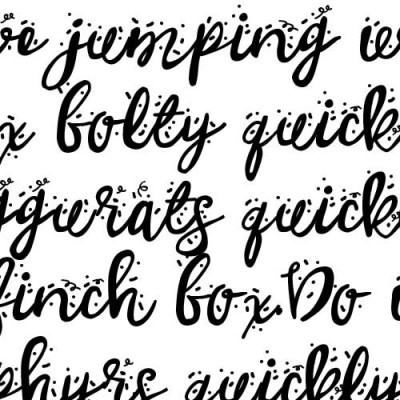 ve jumping w
x bolty quick
ggurats quick
finch box.Do
phyrs quickly